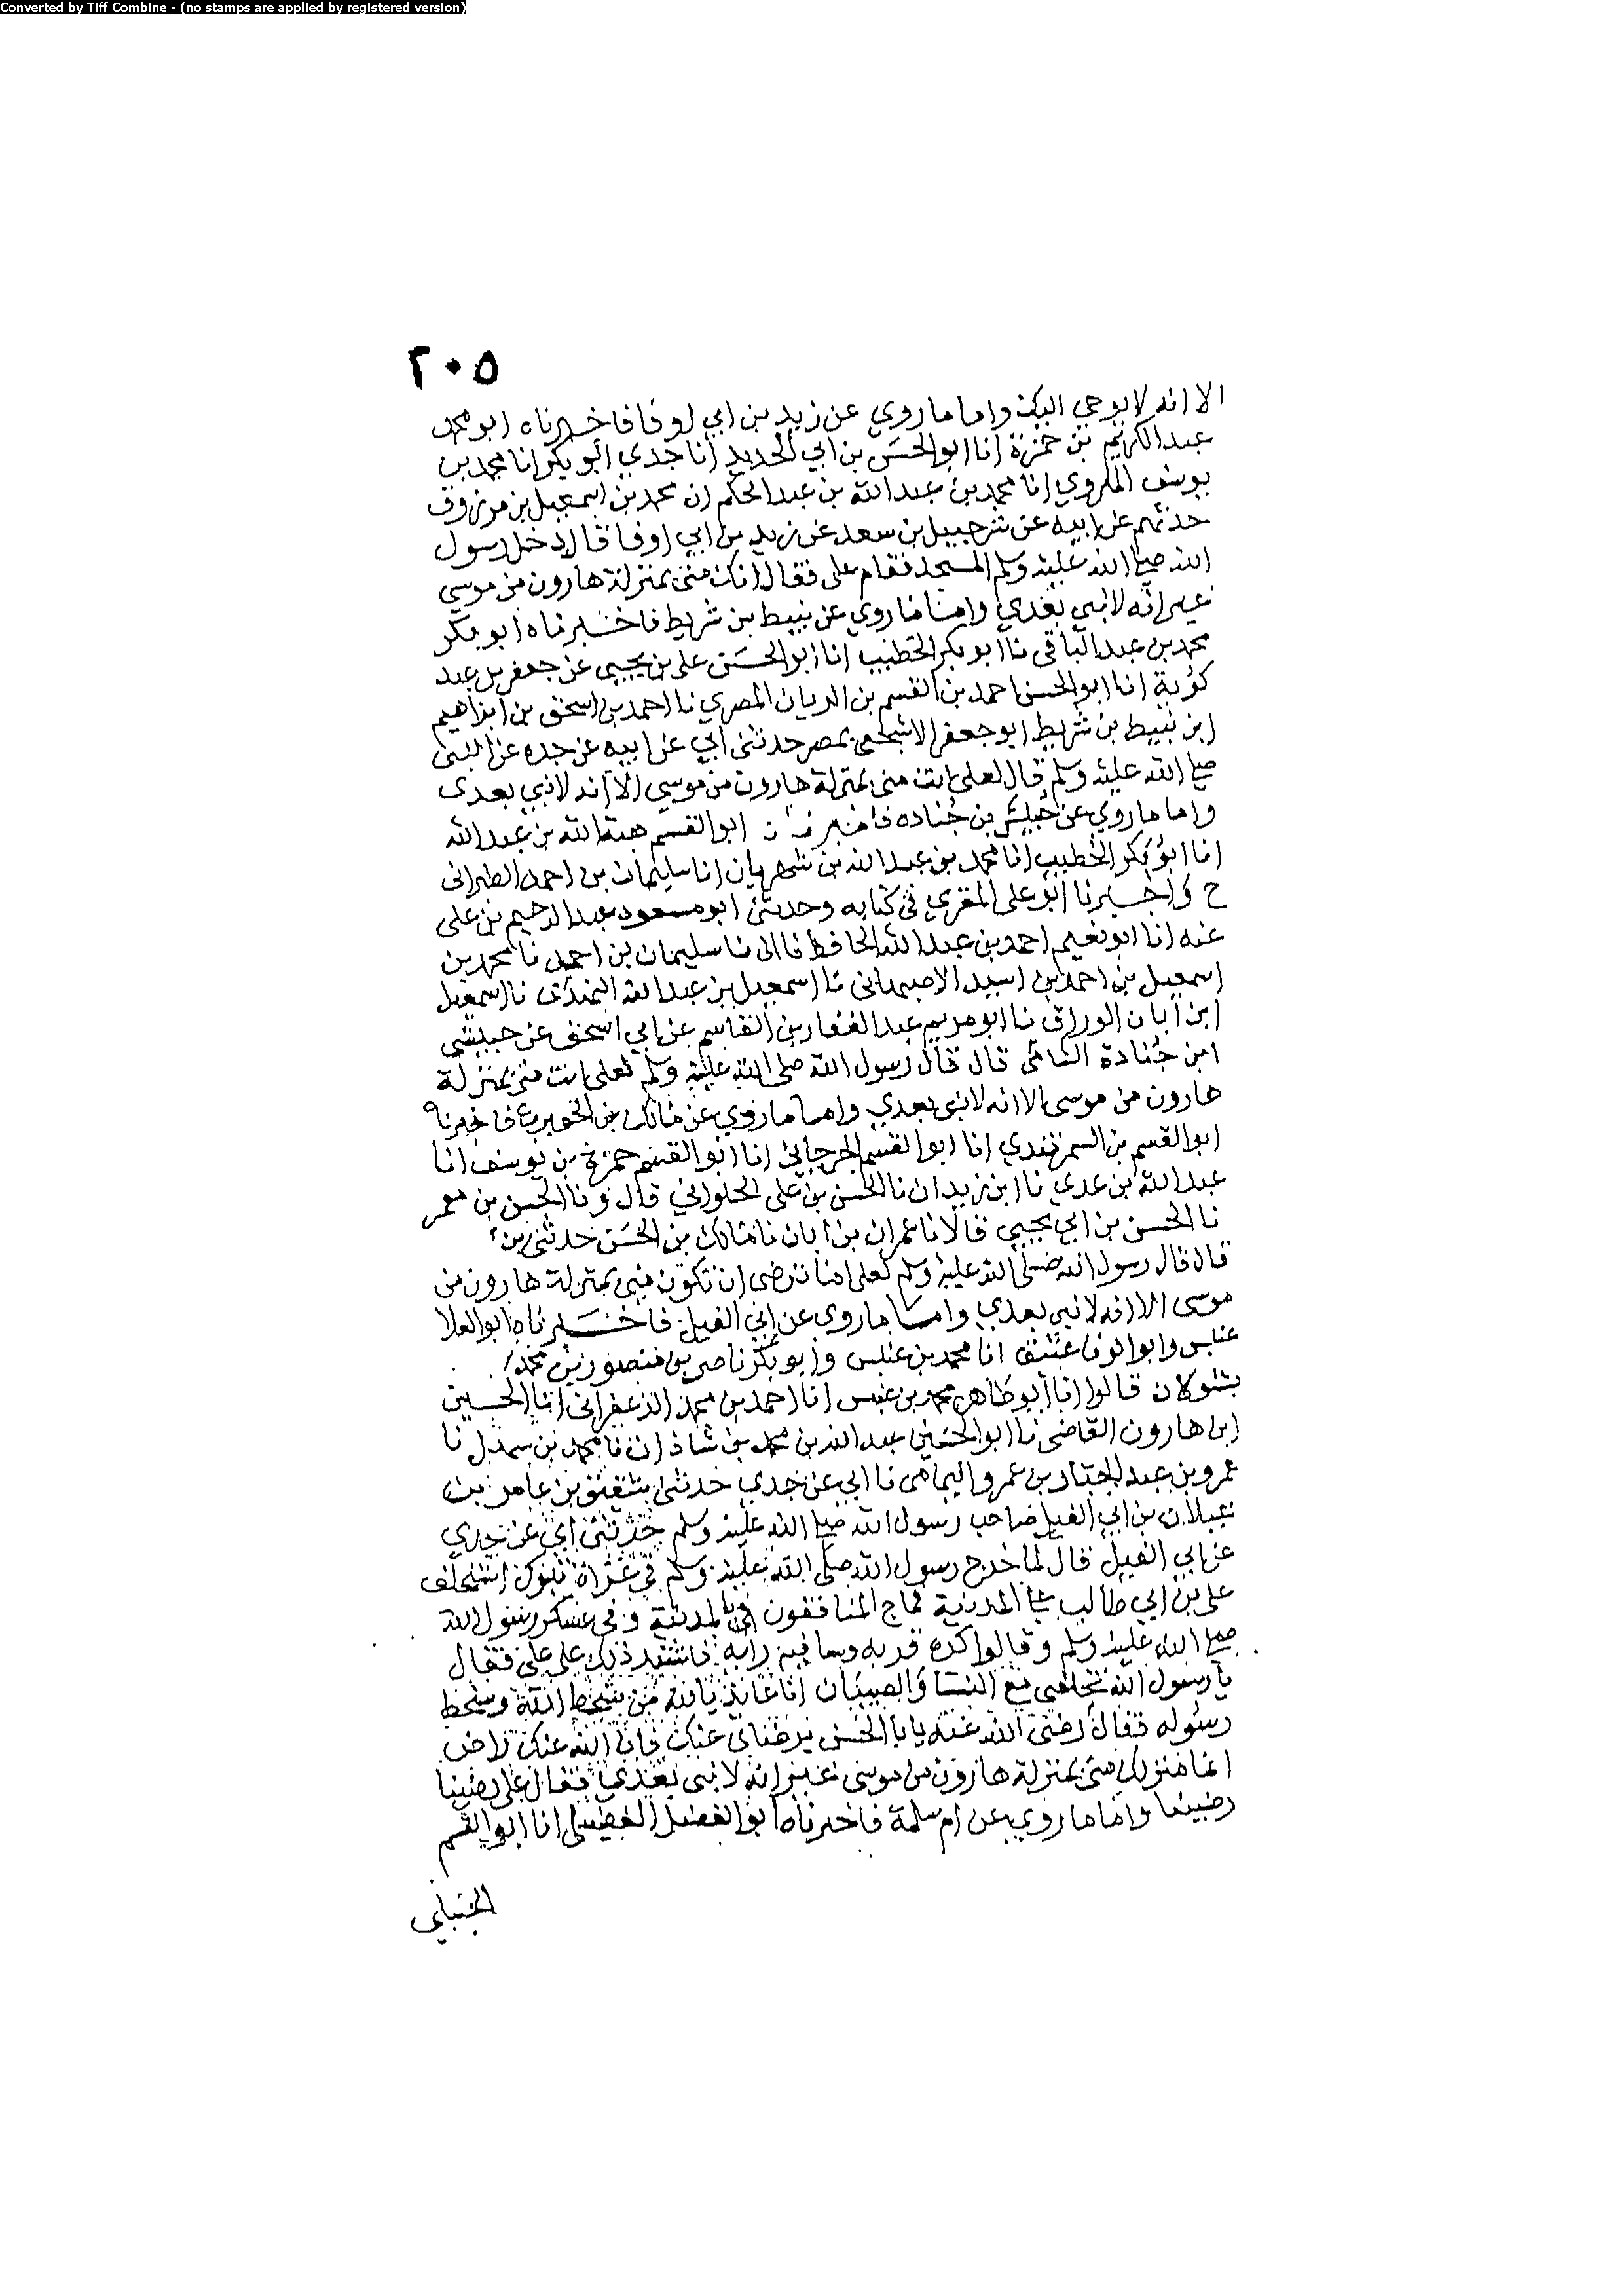 Converted by Tiff Combine - (no stamps are applied by registered version)
٢٠٥
الا انه لا يوحى اليك واما ما روي عن زيد بن ابي اوفا فاخبرناه ابو محمد
عبد الكريم بن حمزة انا ابو الحسن بن ابي الحديد انا جدي ابو بكر انا محمد بن
يوسف الهروي انا محمد بن عبد الله بن عبد الحكم ان محمد بن اسمعيل بن مرزوق
حدثهم عن ابيه عن شرحبيل بن سعد عن زيد بن ابي اوفا قال دخل رسول
الله صلى الله عليه وسلم المسجد فقام علي فقال انك مني بمنزلة هارون من موسى
غير انه لا نبي بعدي واما ما روي عن نبيط بن شريط فاخبرناه ابو بكر
محمد بن عبد الباقي نا ابو بكر الخطيب انا ابو الحسن علي بن يحيى عن جعفر بن عبد
كويه انا ابو الحسن احمد بن القسم بن الريان المصري نا احمد بن اسحق بن ابراهيم
ابن نبيط بن شريط ابو جعفر الاشجعي بمصر حدثني ابي عن ابيه عن جده عن النبي
صلى الله عليه وسلم قال لعلي انت مني بمنزلة هارون من موسى الا انه لا نبي بعدى
واما ما روي عن حبشي بن جناده ابو القسم هبة الله بن عبد الله
انا ابو بكر الخطيب انا محمد بن عبد الله بن شهريان انا سليمان بن احمد الطبراني
ح واخبرنا ابو علي المقري في كتابه وحدثني ابو مسعود عبد الرحيم بن علي
عنه انا ابو نعيم احمد بن عبد الله الحافظ قالا نا سليمان بن احمد نا محمد بن
اسمعيل بن احمد بن اسيد الاصبهاني نا اسمعيل بن عبد الله نا اسمعيل
ابن ابان الوراق نا ابو مريم عبد الغفار بن القاسم عن ابي اسحق عن حبيشي
ابن جنادة قال قال رسول الله صلى الله عليه وسلم لعلي انت مني بمنزلة
هارون من موسى الا انه لا نبي بعدي واما ما روي عن مالك بن الحويرث فاخبرناه
ابو القسم بن السمرقندي انا ابو القسم الجرجاني انا ابو القسم حمزة بن يوسف انا
عبد الله بن عدي نا ابن زيدان نا الحسن بن علي الحلواني قال ونا الحسن بن معمر
نا الحسن بن ابي يحيى قالا نا عمران بن ابان نا مالك بن الحسن حدثني
قال قال رسول الله صلى الله عليه وسلم لعلي اما ترضى ان تكون مني بمنزلة هارون من
موسى الا انه لا نبي بعدي واما ما روي عن ابي الفيل فاخبرناه ابو العلا
عنبس وابو الوفا عتيق انا محمد بن عنبس وابو بكر ناصر بن منصور بن محمد
بشوكان قالوا انا ابو طاهر محمد بن عنبس انا احمد بن محمد الزعفراني انا الحسين
ابن هارون القاضي نا ابو الحسين عبد الله بن محمد بن شاذان نا محمد بن سهل نا
عمرو بن عبد الجبار بن عمرو اليمامي نا ابي عن جدي حدثني بن عامر بن
عيلان بن ابي الفيل صاحب رسول الله صلى الله عليه وسلم حدثني ابي عن جدي
عن ابي الفيل قال لما خرج رسول الله صلى الله عليه وسلم في غزاة تبوك استخلف
علي بن ابي طالب على المدينة فماج المنافقون في المدينة وفي عسكر رسول الله
صلى الله عليه وسلم وقالوا كره قربه وسا فيه رايه فاشتد ذلك على علي فقال
يا رسول الله تخلفني مع النسا والصبيان انا عائذ بالله من سخط الله وسخط
رسوله فقال رضي الله عنه يابا الحسن برضائي عنك فان الله عنك راض
انما منزلك مني بمنزلة هارون من موسى غير انه لا نبي بعدي فقال علي رضينا
رضينا واما ما روي عن ام سلمة فاخبرناه ابو الفضل الفضيلي انا ابو القسم
الخليلي